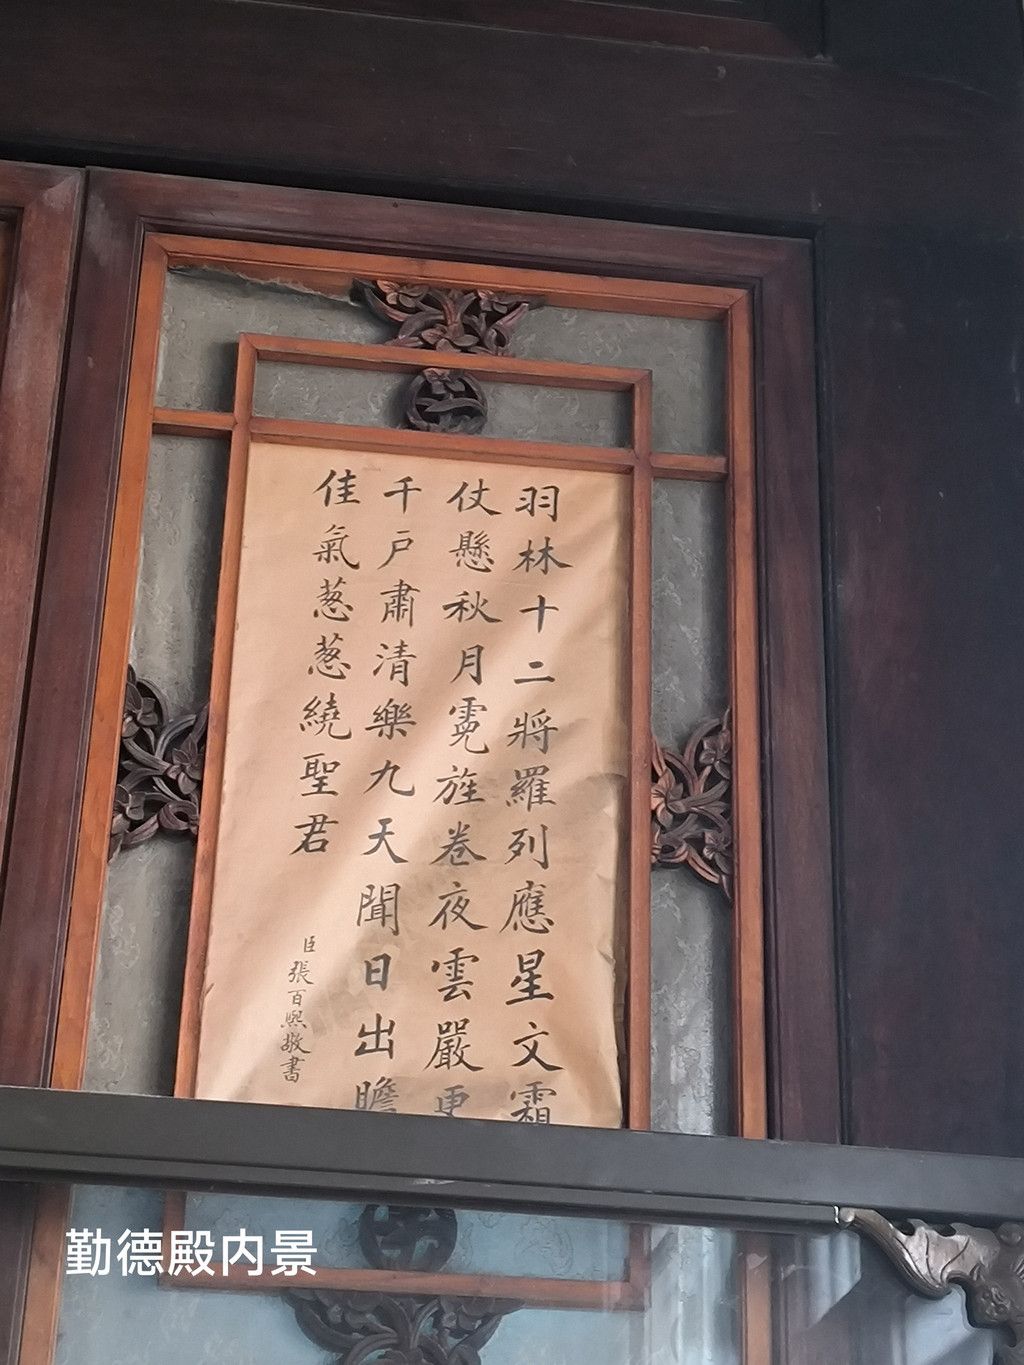 羽林十二將羅列應星文霜
仗懸秋月霓旌卷夜雲嚴更
千戶肅清樂九天聞日出瞻
佳氣蔥蔥繞聖君
臣張百熙敬書
勤德殿内景